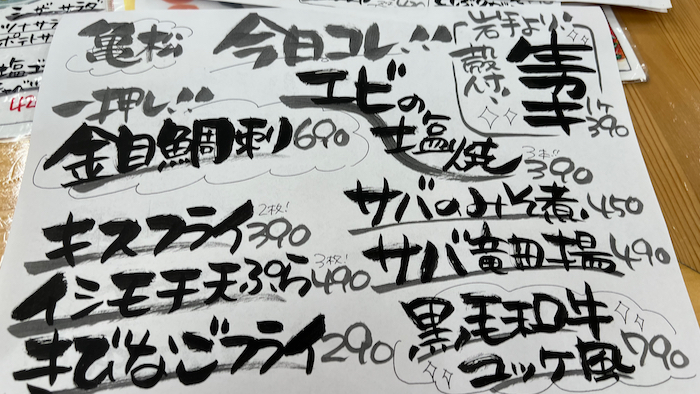 亀松 今日コレ!!
岩手より!
殻付!
生ガキ
1ケ
390
一押し!!
金目鯛刺 690
エビの
塩焼
3本!
390
キスフライ
2枚!
390
サバのみそ煮 450
イシモチ天ぷら
3枚!
490
サバ竜田揚 490
きびなごフライ 290
黒毛和牛
ユッケ風 790
シーザーサラダ
ツナサラダ
ポテトサ